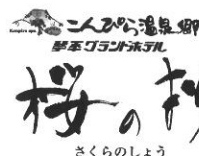 Konpira spa こんぴら温泉郷
琴平グランドホテル
桜の
さくらのしょう